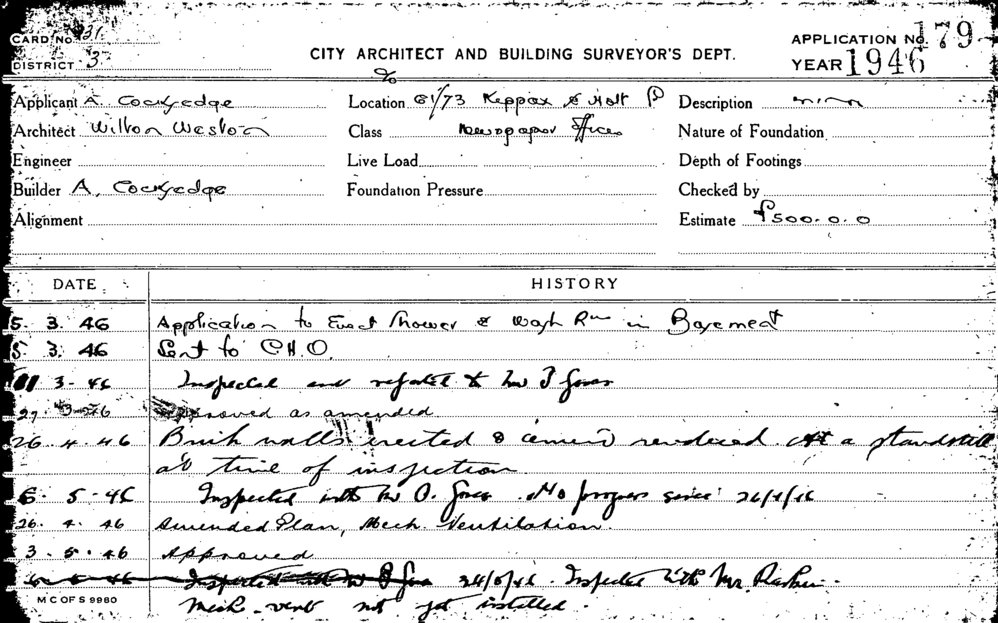 CARD No. 931
DISTRICT 3
CITY ARCHITECT AND BUILDING SURVEYOR'S DEPT.
APPLICATION No. 179
YEAR 1946
Applicant A. Cockedge
Location 61/73 Keppax & Holt
Description
Architect Wilton Weston
Class Newspaper Offices
Nature of Foundation
Engineer
Live Load
Depth of Footings
Builder A. Cockedge
Foundation Pressure
Checked by
Alignment
Estimate £500.0.0
DATE
HISTORY
5. 3. 46 Application to Erect Shower & Wash Rm in Basement
5. 3. 46 Sent to C.H.O.
3-46 Inspected and reported to Mr Jones
27 3-46 Approved as amended
26. 4. 46 Brick walls erected & cement rendered. At a standstill
at time of inspection
6. 5-46 Inspected with Mr O. Jones. No progress since 26/4/46
26. 4. 46 Amended Plan, Mech. Ventilation
3. 5. 46 Approved
24/5/46. Inspected with Mr.
Mech. vent not yet installed.
M C OF S 9980